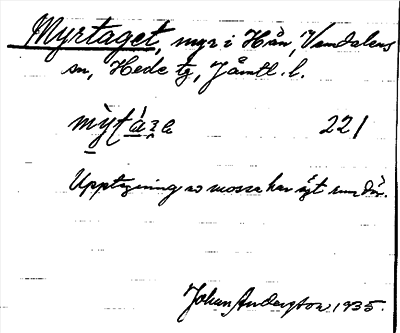 Myrtaget, myr i Hån, Vemdalens
sn, Hede tg, Jämtl. l.
221
Upptagning av mossa har ägt rum där.
Johan Anderzon 1935.